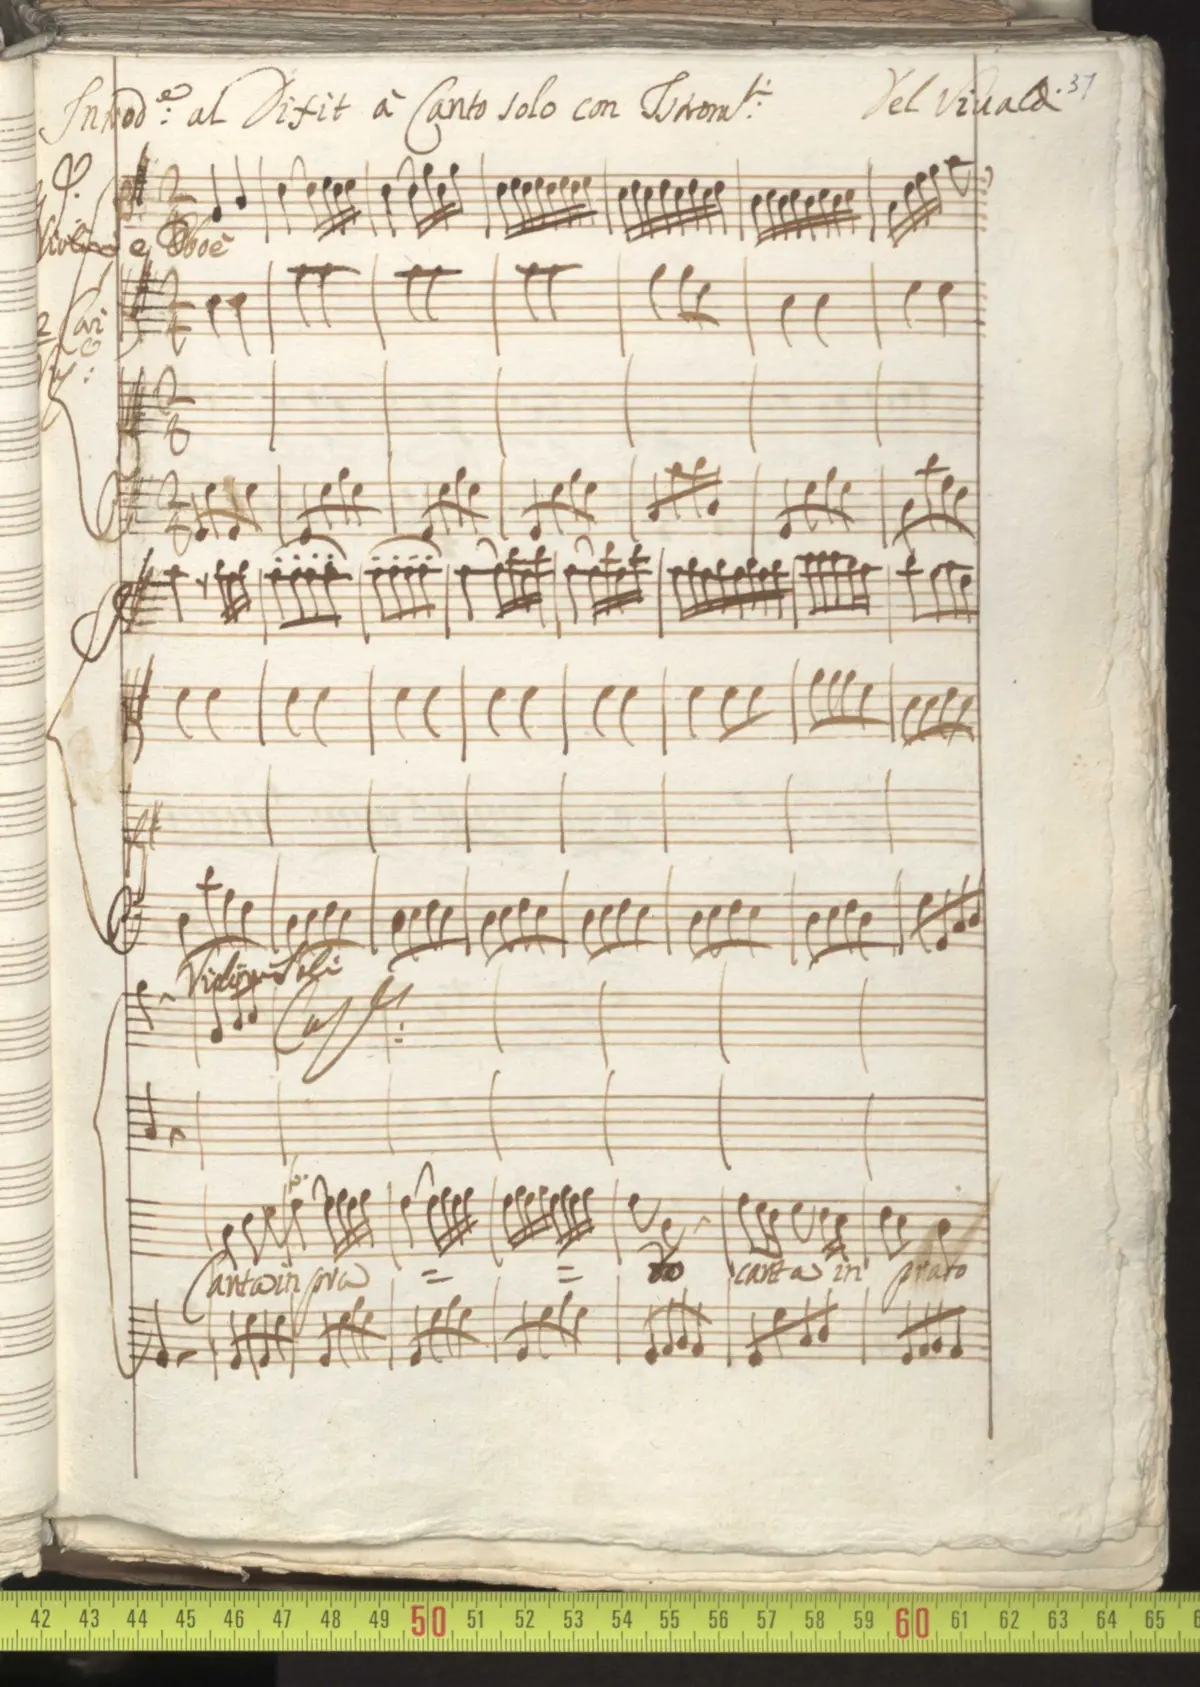 Introd.e al Dixit à Canto solo con Istrom.ti Del Viuald. 37
P.
Violini e Oboè
Violini Soli
p.
Canta in pra = = to canta in prato
42 43 44 45 46 47 48 49 50 51 52 53 54 55 56 57 58 59 60 61 62 63 64 65 6